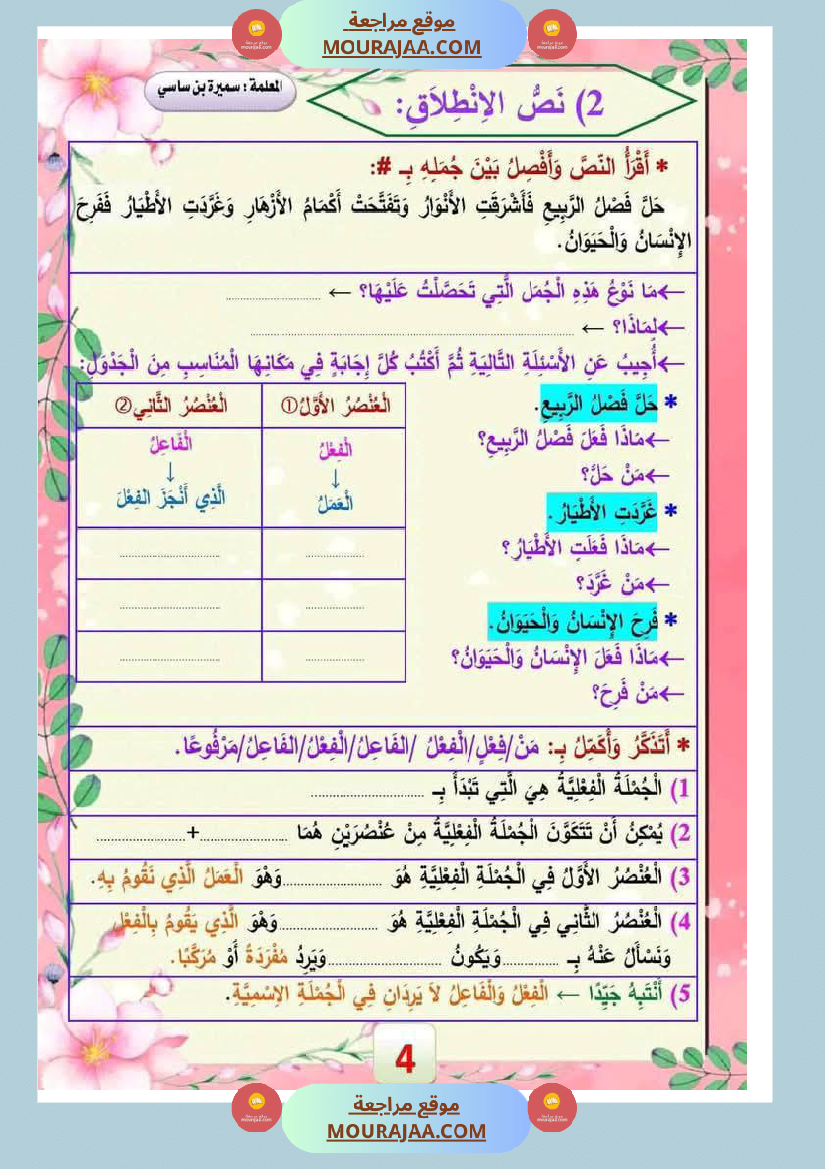 موقع مراجعة
MOURAJAA.COM
المعلمة : سميرة بن ساسي
2) نَصُّ الاِنْطِلاَقِ:
* أَقْرَأُ النَّصَّ وَأَفْصِلُ بَيْنَ جُمَلِهِ بِـ #:
حَلَّ فَصْلُ الرَّبِيعِ فَأَشْرَقَتِ الأَنْوَارُ وَتَفَتَّحَتْ أَكْمَامُ الأَزْهَارِ وَغَرَّدَتِ الأَطْيَارُ فَفَرِحَ
الإِنْسَانُ وَالْحَيَوَانُ.
←مَا نَوْعُ هَذِهِ الْجُمَلِ الَّتِي تَحَصَّلْتُ عَلَيْهَا؟ ← ..........................
←لِمَاذَا؟ ← ..........................................................
←أُجِيبُ عَنِ الأَسْئِلَةِ التَّالِيَةِ ثُمَّ أَكْتُبُ كُلَّ إِجَابَةٍ فِي مَكَانِهَا الْمُنَاسِبِ مِنَ الْجَدْوَلِ:
* حَلَّ فَصْلُ الرَّبِيعِ.
←مَاذَا فَعَلَ فَصْلُ الرَّبِيعِ؟
←مَنْ حَلَّ؟
* غَرَّدَتِ الأَطْيَارُ.
←مَاذَا فَعَلَتِ الأَطْيَارُ؟
←مَنْ غَرَّدَ؟
* فَرِحَ الإِنْسَانُ وَالْحَيَوَانُ.
←مَاذَا فَعَلَ الإِنْسَانُ وَالْحَيَوَانُ؟
←مَنْ فَرِحَ؟
الْعُنْصُرُ الأَوَّلُ① الْعُنْصُرُ الثَّانِي②
الْفِعْلُ الْفَاعِلُ
↓ ↓
الْعَمَلُ الَّذِي أَنْجَزَ الفِعْلَ
................ ............................
................ ............................
................ ............................
* أَتَذَكَّرُ وَأُكَمِّلُ بِـ: مَنْ/فِعْلٍ/الْفِعْلُ /الفَاعِلُ/الْفِعْلُ/الفَاعِلُ/مَرْفُوعًا.
1) الْجُمْلَةُ الْفِعْلِيَّةُ هِيَ الَّتِي تَبْدَأُ بِـ ............................
2) يُمْكِنُ أَنْ تَتَكَوَّنَ الْجُمْلَةُ الْفِعْلِيَّةُ مِنْ عُنْصُرَيْنِ هُمَا ......................+......................
3) الْعُنْصُرُ الأَوَّلُ فِي الْجُمْلَةِ الْفِعْلِيَّةِ هُوَ .........................وَهْوَ الْعَمَلُ الَّذِي نَقُومُ بِهِ.
4) الْعُنْصُرُ الثَّانِي فِي الْجُمْلَةِ الْفِعْلِيَّةِ هُوَ .........................وَهْوَ الَّذِي يَقُومُ بِالْفِعْلِ
وَنَسْأَلُ عَنْهُ بِـ ..............وَيَكُونُ ............................وَيَرِدُ مُفْرَدَةً أَوْ مُرَكَّبًا.
5) أَنْتَبِهُ جَيِّدًا ← الْفِعْلُ وَالْفَاعِلُ لاَ يَرِدَانِ فِي الْجُمْلَةِ الاِسْمِيَّةِ.
4
موقع مراجعة
MOURAJAA.COM